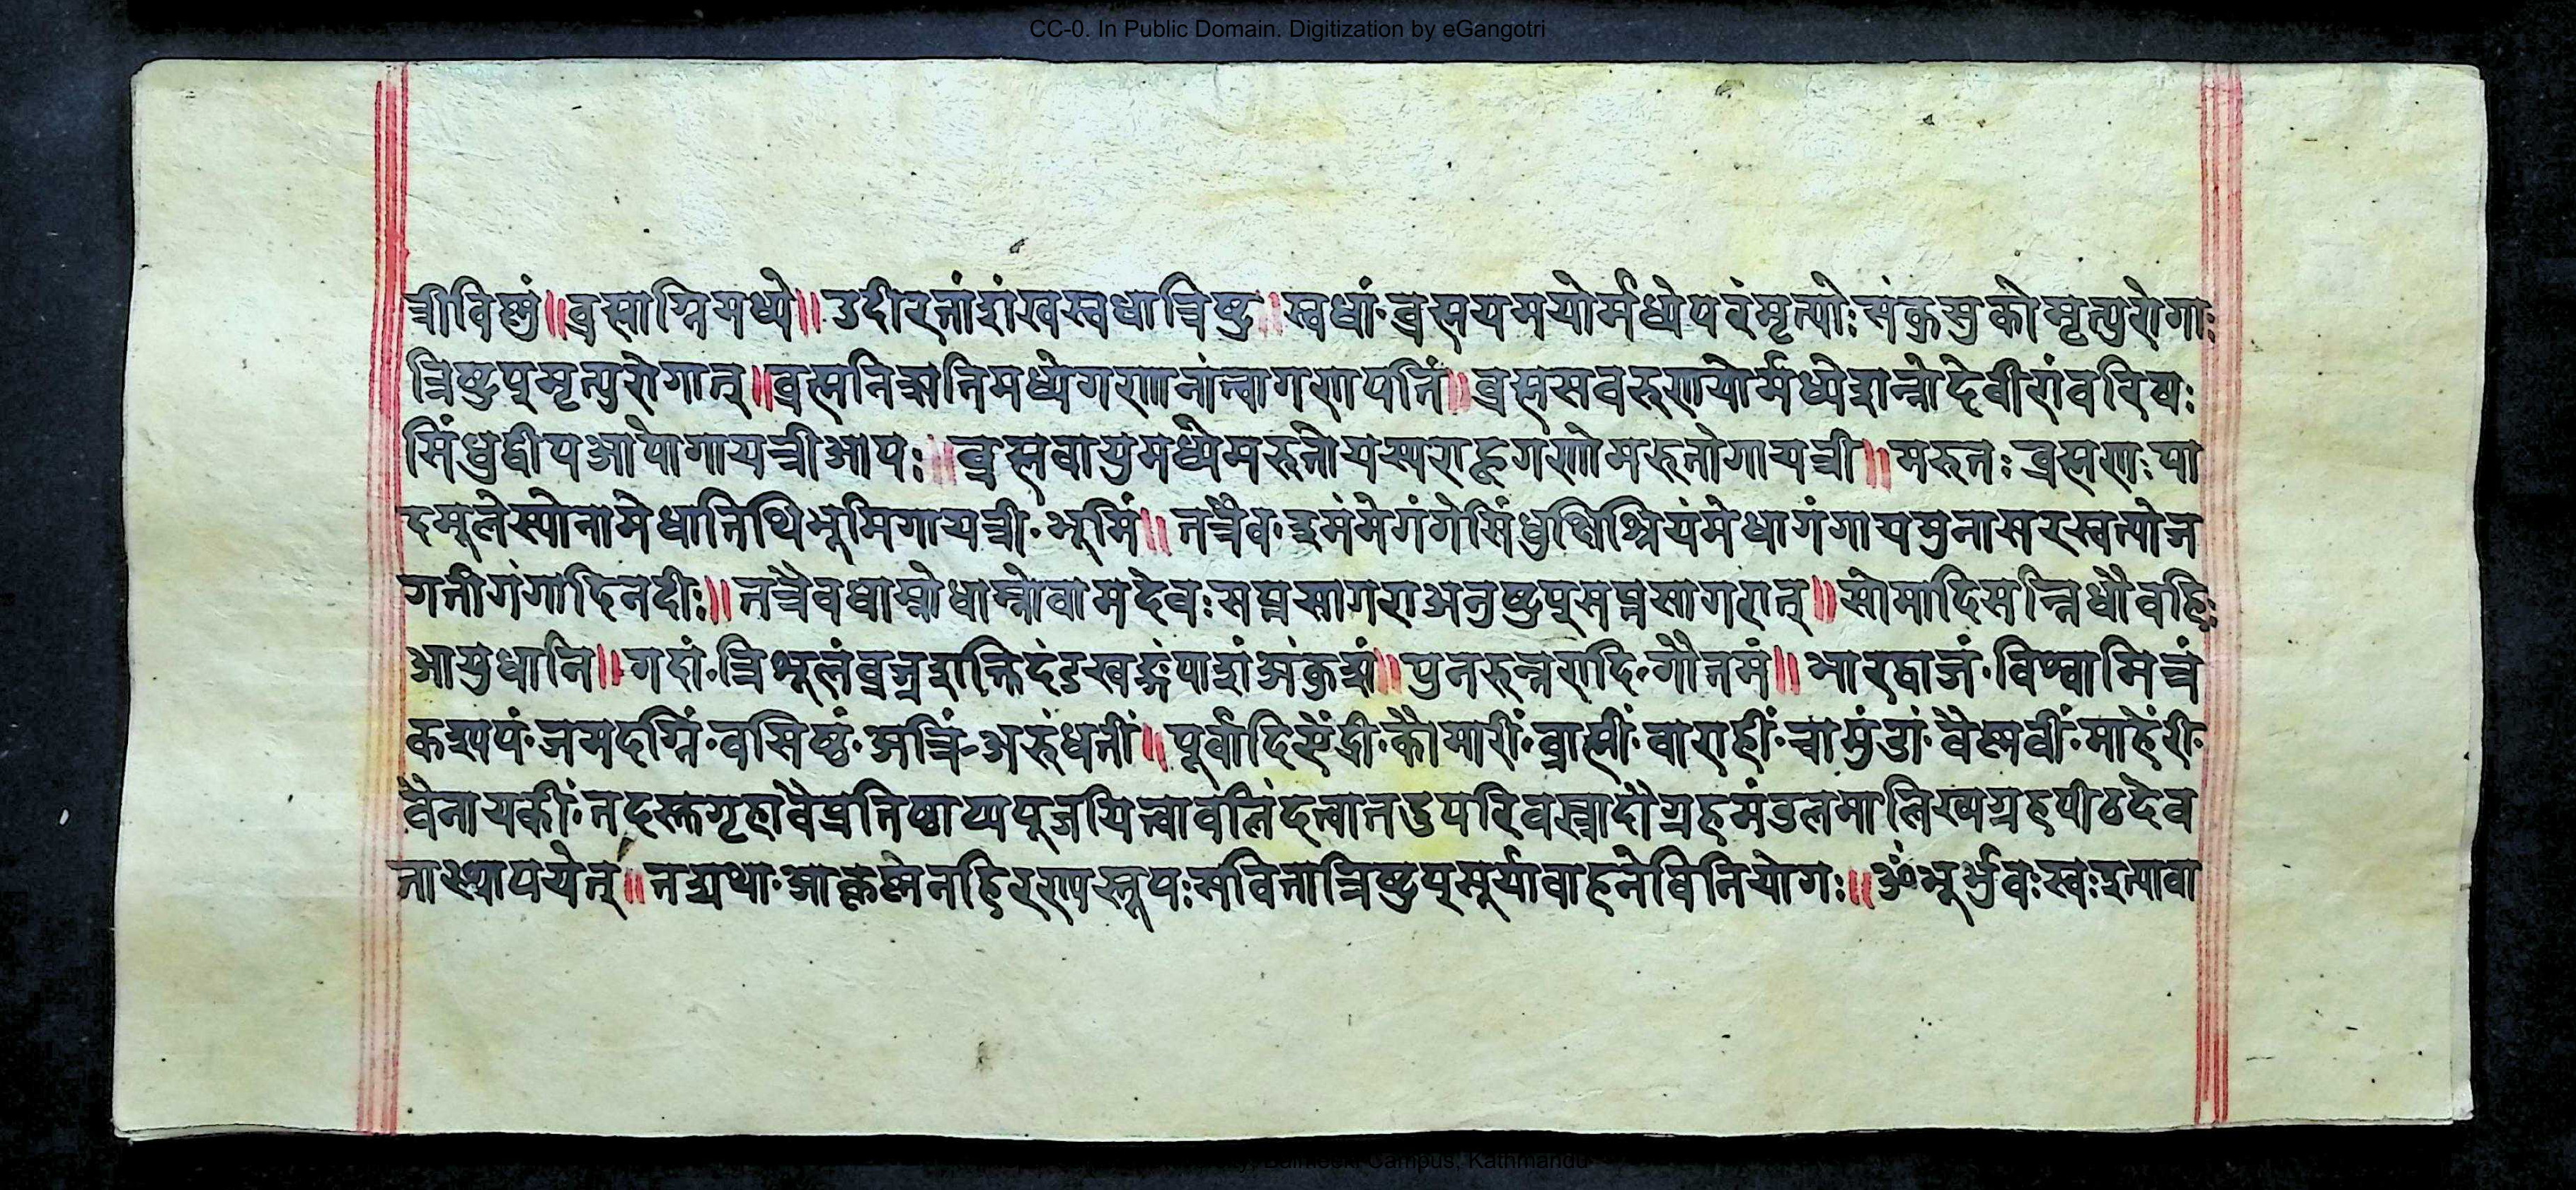 CC-0. In Public Domain. Digitization by eGangotri
त्रीविष्णुं॥ब्रह्माग्निमध्ये॥उदीरतांशंखस्वधात्रिष्टु॥स्वधां·ब्रह्मयमयोर्मध्येपरंमृत्योःसंकुसुकोमृत्युरोगाः
त्रिष्टुप्मृत्युरोगान्॥ब्रह्मनिऋतिमध्येगणानांत्वागणपतिं॥ब्रह्मसवरुणयोर्मध्येशन्नोदेवीरांवरिषः
सिंधुद्वीपआपोगायत्रीआपः॥ब्रह्मवायुमध्येमरुतोयस्यराहूगणोमरुतोगायत्री॥मरुतःब्रह्मणःपा
दमूलेस्योनामेधातिथिभूमिगायत्री·भूमिं॥तत्रैव·इमंमेगंगेसिंधुक्षिश्रियंमेधागंगायमुनासरस्वत्योज
गतीगंगादिनदीः॥तत्रैवधाम्नोधाम्नोवामदेवःसप्तसागराअनुष्टुप्सप्तसागरान्॥सोमादिसन्निधौवहिः
आयुधानि॥गदां·त्रिशूलंवज्रशक्तिदंडखङ्गंपाशंअंकुशं॥पुनरुत्तरादि·गौतमं॥भारद्वाजं·विश्वामित्रं
कश्यपं·जमदग्निं·वसिष्ठं·अत्रिं-अरुंधतीं॥पूर्वादिऐंद्री·कौमारीं·ब्राह्मीं·वाराहीं·चामुंडां·वैष्णवीं·माहेंरी·
वैनायकीं·तदस्तगृहावैप्रतिष्ठाप्यपूजयित्वावलिंदत्वातदुपरिवस्त्रादौग्रहमंडलमालिख्यग्रहपीठदेव
तास्थापयेत्॥तद्यथा·आकृष्णेनहिरण्यस्तूपःसवितात्रिष्टुप्सूर्यावाहनेविनियोगः॥ॐभूर्भुवःस्वःइत्यावा
Campus, Kathmandu